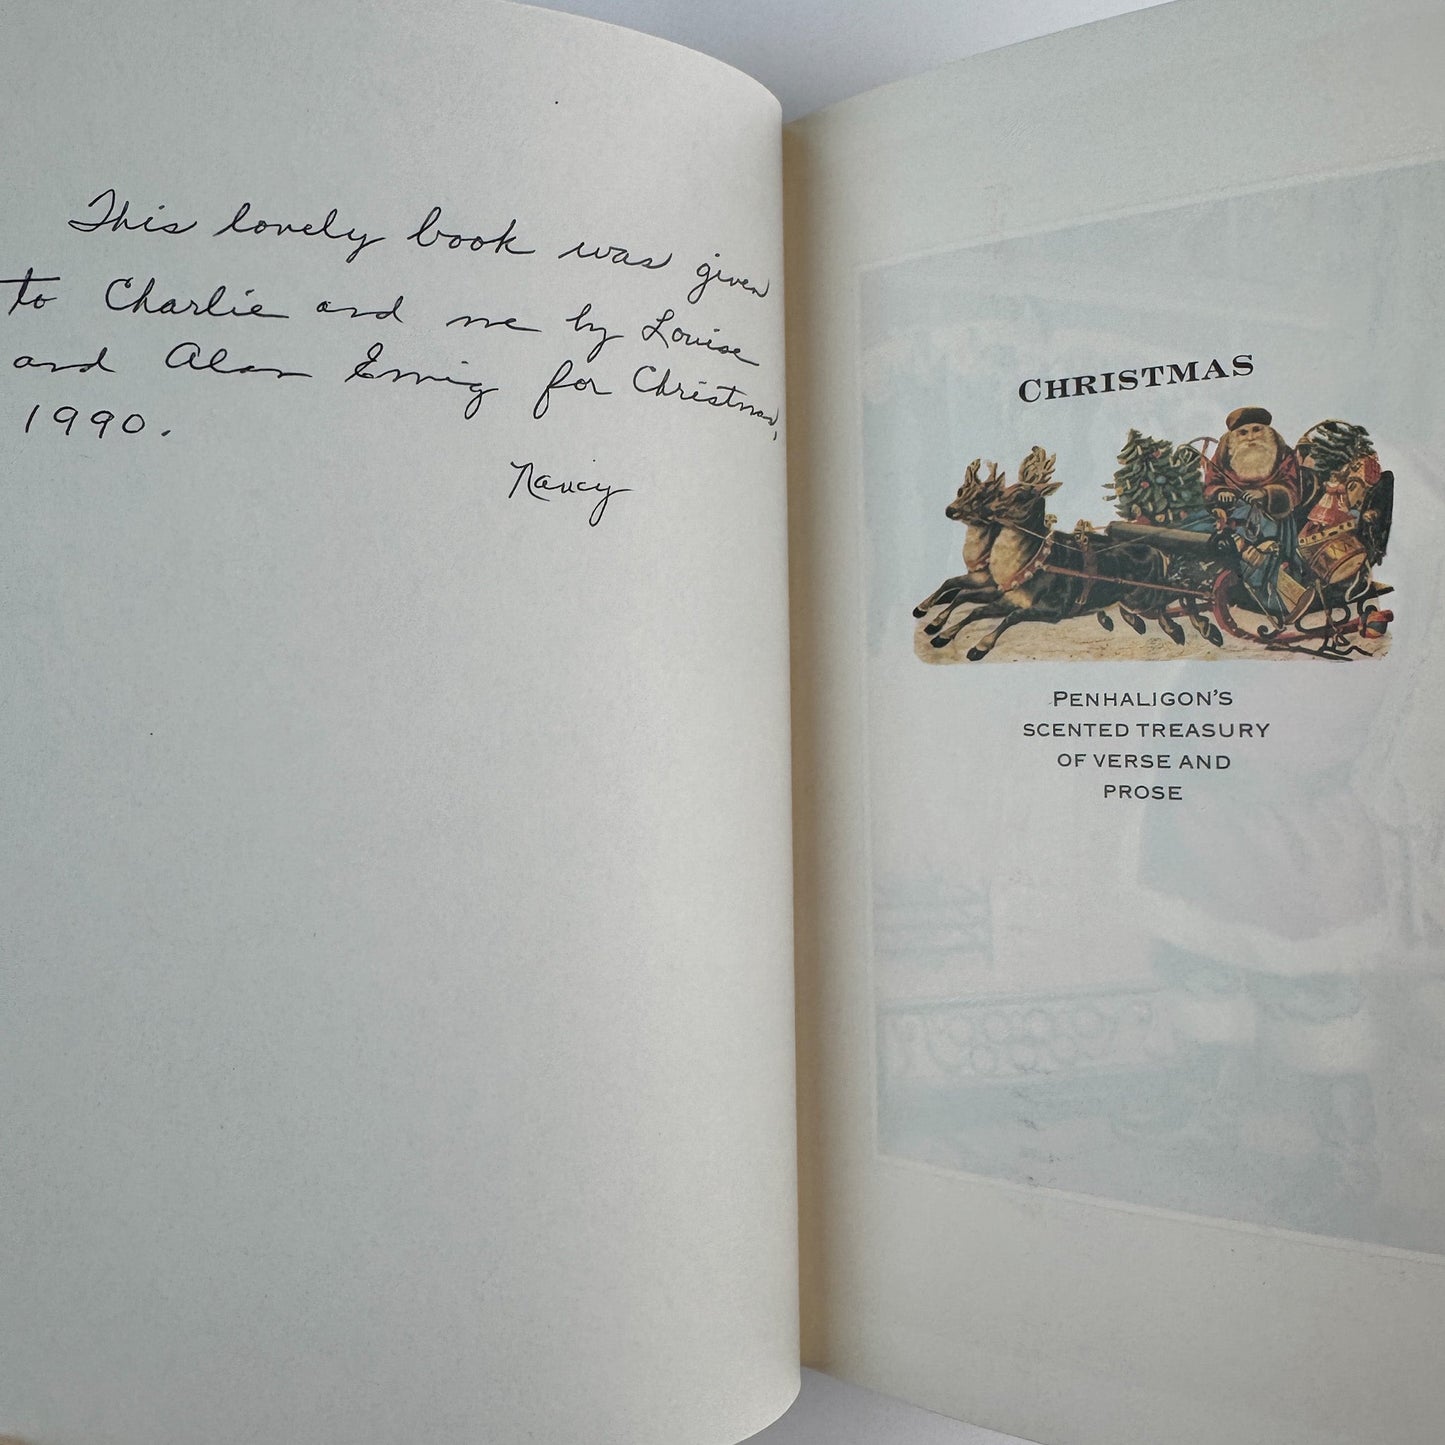 This lovely book was given
to Charlie and me by Louise
and Alan Emig for Christmas,
1990.
Nancy
CHRISTMAS
PENHALIGON'S
SCENTED TREASURY
OF VERSE AND
PROSE